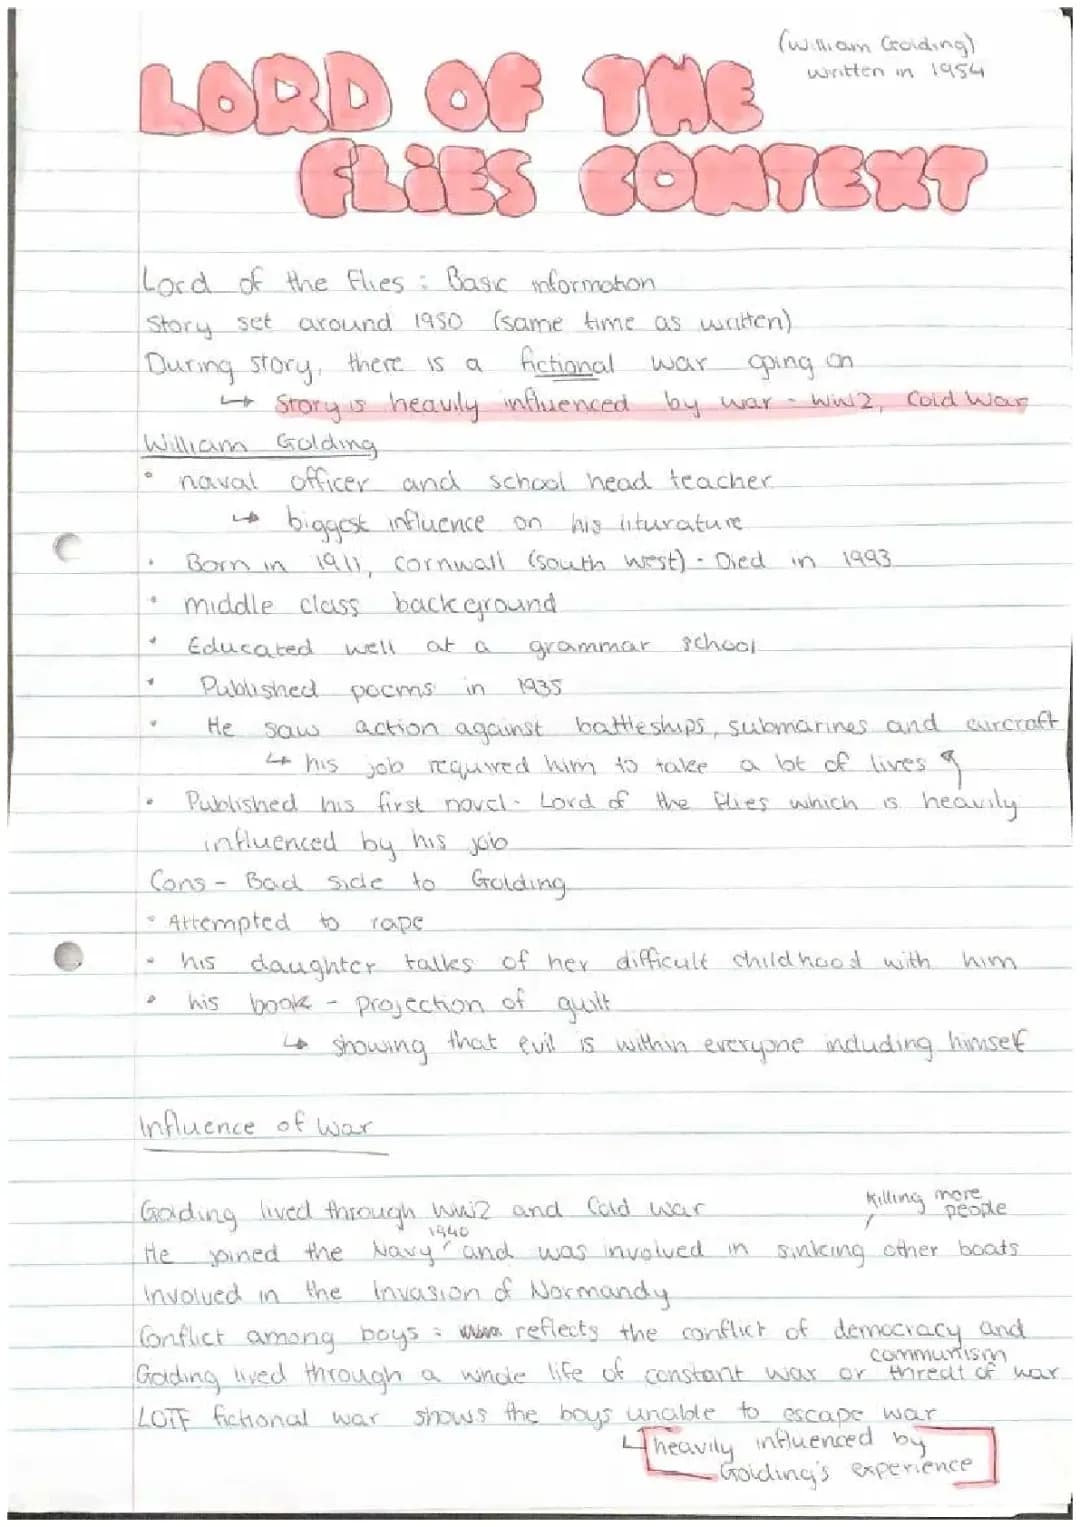 (William Golding)
written in 1954
LORD OF THE
FLiES CONTEXT
Lord of the Flies : Basic information
Story set around 1950 (same time as written)
During story, there is a fictional war going on
↳ Story is heavily influenced by war - WW2, Cold War
William Golding
• naval officer and school head teacher
↳ biggest influence on his liturature
• Born in 1911, Cornwall (south west) - Died in 1993
• middle class background
• Educated well at a grammar school
• Published poems in 1935
• He saw action against battleships, submarines and aircraft
↳ his job required him to take a lot of lives
• Published his first novel - Lord of the Flies which is heavily
influenced by his job
Cons - Bad side to Golding
• Attempted to rape
• his daughter talks of her difficult childhood with him
• his book - projection of guilt
↳ showing that evil is within everyone including himself
Influence of War
Golding lived through WW2 and Cold war
killing more people
1940
He joined the Navy and was involved in sinking other boats
Involved in the Invasion of Normandy
Conflict among boys : reflects the conflict of democracy and
communism
Golding lived through a whole life of constant war or threat of war
LOTF fictional war shows the boys unable to escape war
↳ heavily influenced by
Golding's experience